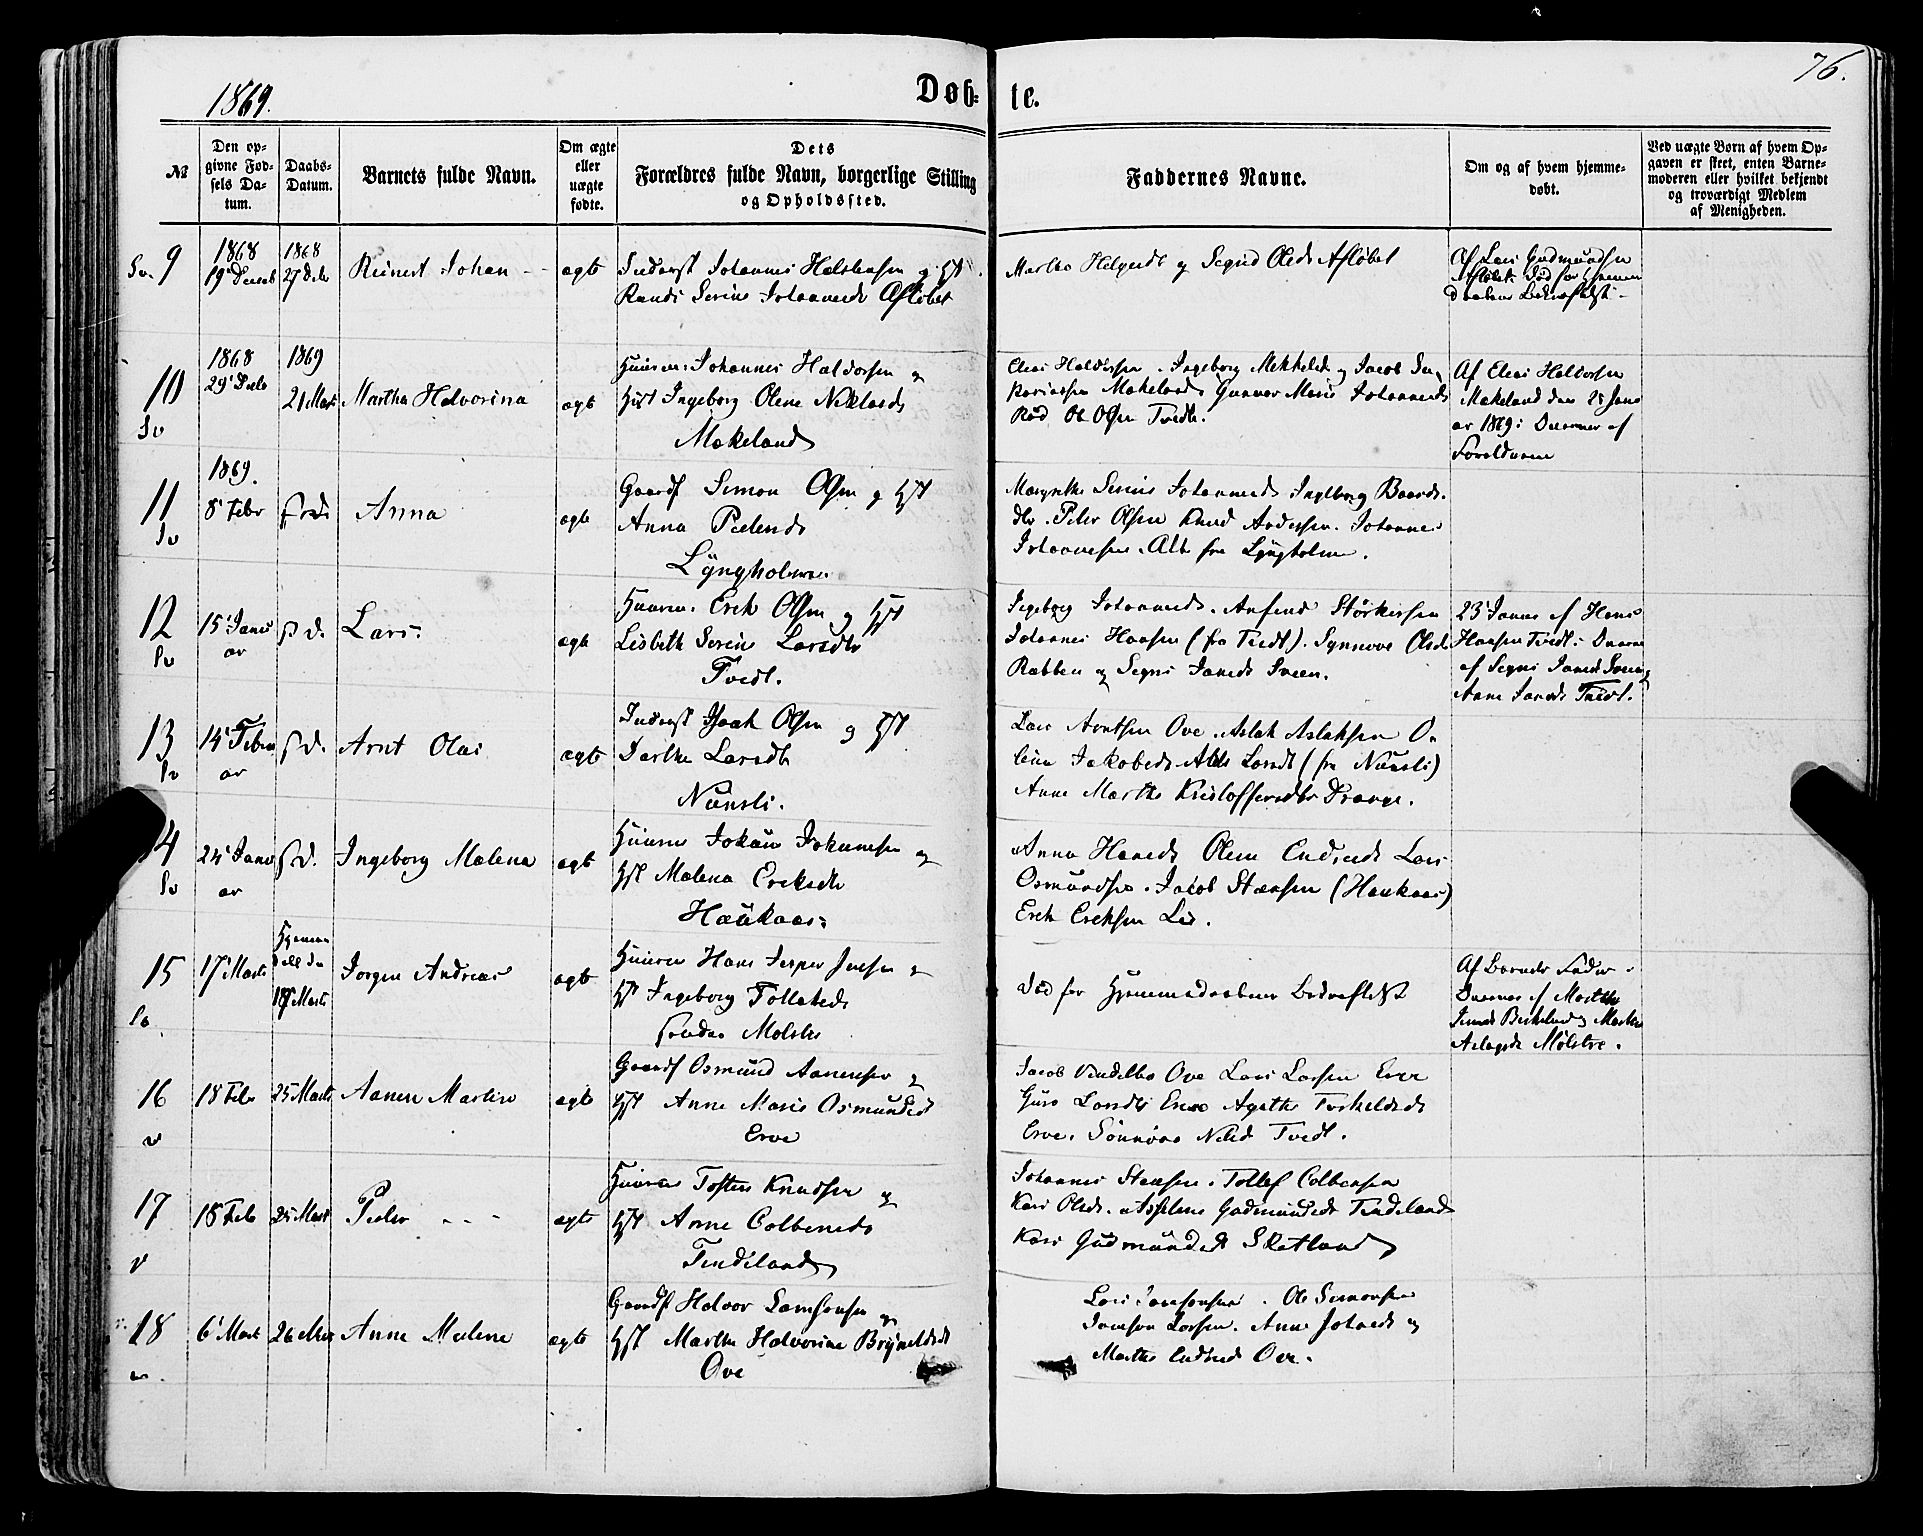 76.
1869.
Døb- te.
№
Den opgivne Fødsels Datum.
Daabs-Datum.
Barnets fulde Navn.
Om ægte eller uægte fødte.
Dets Forældres fulde Navn, borgerlige Stilling og Opholdssted.
Faddernes Navne.
Om og af hvem hjemmedøbt.
Ved uægte Børn af hvem Opgaven er skeet, enten Barnemoderen eller hvilket bekjendt og troværdigt Medlem af Menigheden.
9 1868 1868
19 Deceb 27 Deb Reinert Johan ægte Inderst Johannes Halstensen og Hst
Randi Serine Johannesd Afløbet
Martha Helgesdt og Segnd Olsdt Afløbet
Af Lars Gudmundsen
Afløbet Død før Hjemme
daabens Bekræftelse
10 1868 1869
29 Deb 21 Mart Martha Halvorina ægt Huusm. Johannes Haldorsen og
Hst Ingeborg Olene Niklasd
Mækeland
Elias Haldorsen Ingeborg Mikkelsd og Jacob
Mækeland Gunner Marie Johannesd
Rød Ole Olsen Tvedt.
Af Elias Haldorsen
Mækeland den 21 Janu
ar 1869: Dueomer af
Forældrene
11 1869.
8 Febr s. d. Anna ægte Gaardf Simon Olsen og Hst
Anna Pedersd
Lyngholmen
Margrethe Serine Johannesd Ingeborg Baards
dtr. Peder Olsen Knud Andersen. Johannes
Johannesen. Alle fra Lyngholmen.
12 15 Janu
ar s. d. Lars. ægte Huusm. Erik Olsen og Hst
Lisbeth Serine Larsdtr
Tvedt.
Ingeborg Johannesd. Anfind Størkersen
Johannes Hansen (fra Tvedt). Synnove Olsdt
Rabben og Segni Jansd Sveen.
23 Januar af Hans
Hansen Tvedt:
af Segni Jansd Sveen og
Anne Jansd Tvedt.
13 14 Febru
ar s. d. Arnt Olai ægte Inderst Isaak Olsen og Hst
Dorthe Larsdtr
Nernsli.
Lars Arntsen Ove. Aslak Aslaksen O-
line Jakobsd Larsdt
Anne Marthe Kristoffersdtr Drange.
14 24 Janu
ar s. d. Ingeborg Malena ægte Huusm Johannesen og
Hst Malena Eriksdtr
Haükaas.
Anna Hansdt Olena Endresdt Lars
Osmundsen. Jacob Stensen (Haukaas)
Erik Eriksen Lid.
15 17 Marts
18 Marts Jørgen Andreas ægte Huusm Hans Jesper Jensen og
Hst Ingeborg Tollaksd
Molstre
Død før Hjemmedaabens Bekræftelse
Af Barnets Fader.
af Marthe
Birkeland og Marthe
Aslagsd Mølstre.
16 18 Febr 25 Marts Aanen Martin ægte Gaardf Osmund Aanensen og
Hst Anne Marie Osmundsd
Erve
Jacob Ove Lars Larsen Erve
Guro Larsdt Erve Agathe Torkeldsd
Erve. Sønnøve Nilsd Tvedt.
17 18 Febr 25 Mart Peder ægte Huusm Tosten Knudsen og
Hst Anne Colbensd
Tendeland
Johannes Stensen. Tollef Colbensen
Kari Olsd. Gudmundsd Tendeland
Kari Gudmundsdt Sketland
18 6 Mart 26 Mart Anne Malene ægte Gaardf Halvor Samsonsen og
Hst Marthe Halvorine Brynieldsdt
Ove
Lars Samsonsen. Ole Simonsen
Samson Larsen. Anne Johnsd og
Marthe Endresd Ove.